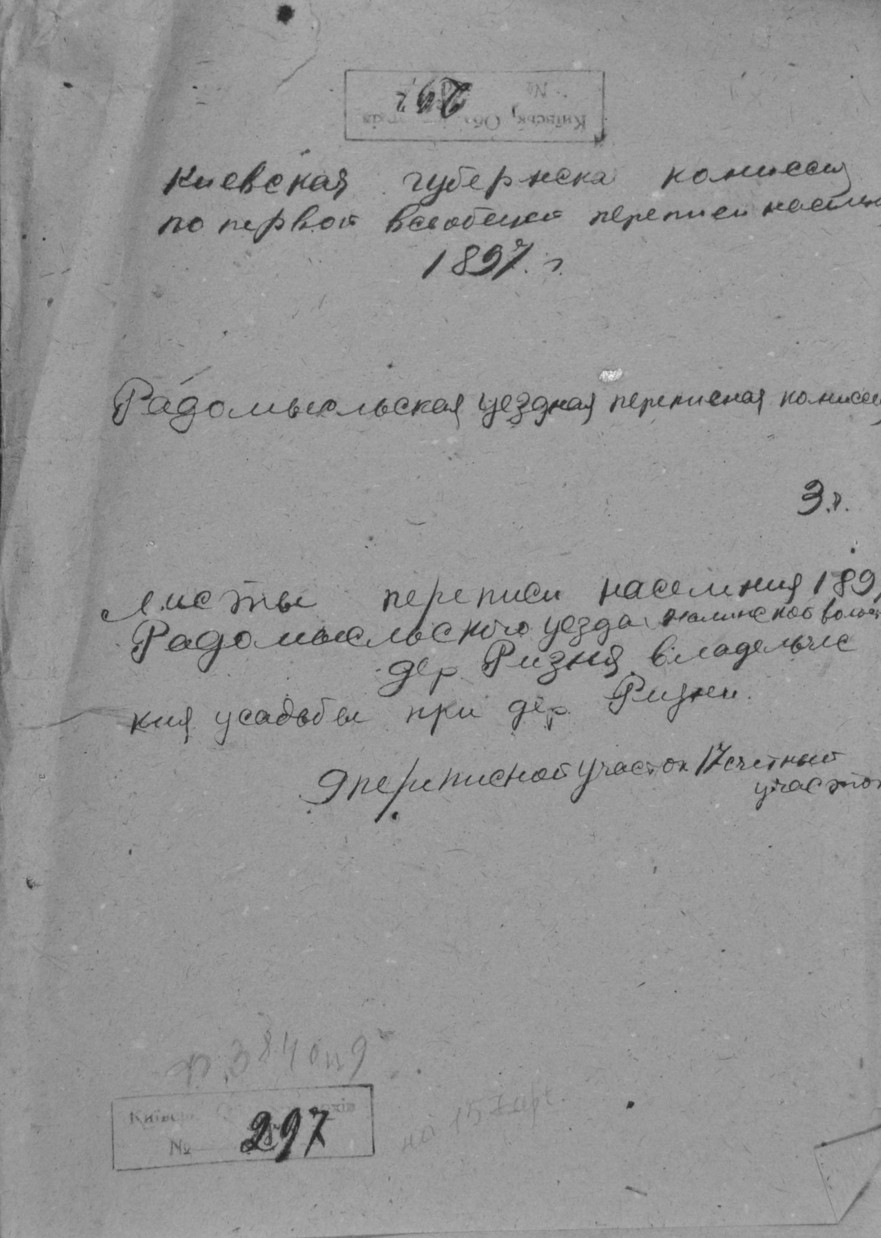 № 297
Київськ. Обл.
Киевская губернска комиссия
по первой всеобщей переписи населен
1897 г.
Радомысльская уездная переписная комисси
З.д.
Листы переписи населения 189
Радомысльского уезда
дер Ризня владельчес
кия усадьбы при дер. Ризни.
9 переписной участок 17 счетный
участок
384 оп 9
Київськ
№ 297
на 15